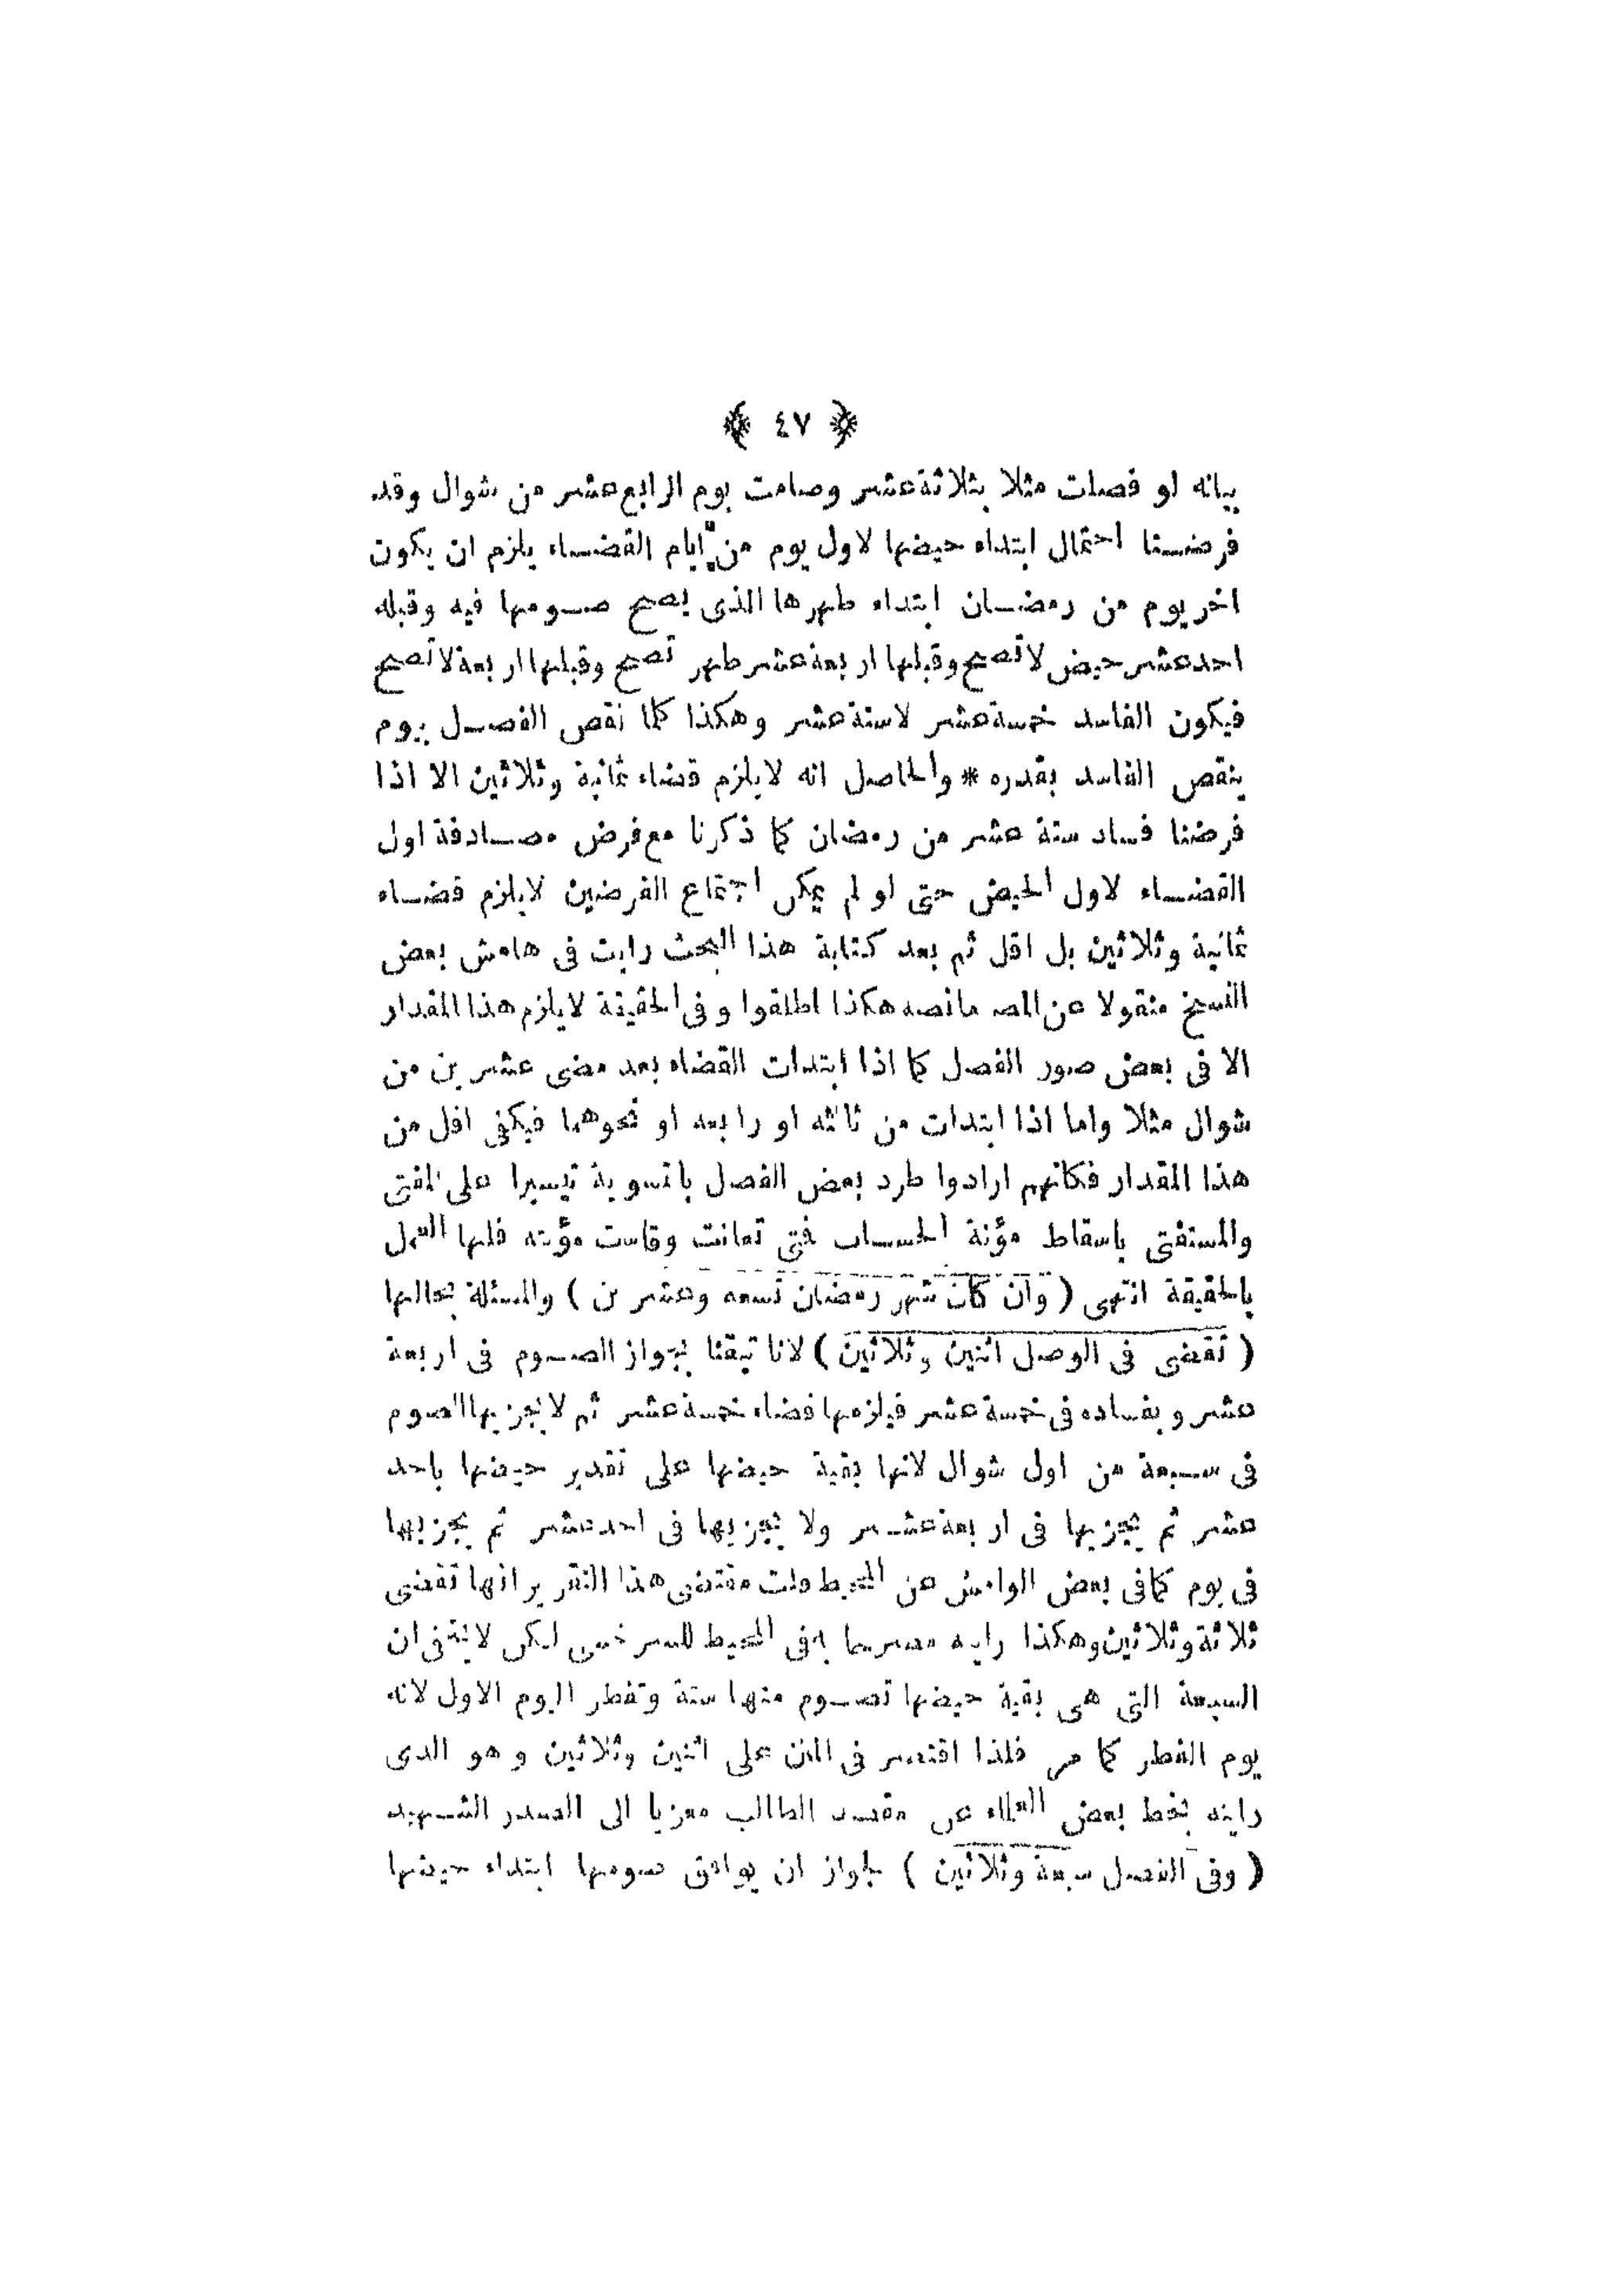 ﴿ ٤٧ ﴾
بيانه لو فصلت مثلا بثلاثة عشر وصامت يوم الرابع عشر من شوال وقد
فرضنا احتمال ابتداء حيضها لاول يوم من ايام القضاء يلزم ان يكون
اخر يوم من رمضان ابتداء طهرها الذى يصح صومها فيه وقبله
احد عشر حيض لا تصح وقبلها اربعة عشر طهر تصح وقبلها اربعة لا تصح
فيكون الفاسد خمسة عشر لا ستة عشر وهكذا كلما نقص الفصل يوم
ينقص الفاسد بقدره * والحاصل انه لا يلزم قضاء ثمانية وثلاثين الا اذا
فرضنا فساد ستة عشر من رمضان كما ذكرنا مع فرض مصادفة اول
القضاء لاول الحيض حتى لو لم يمكن اجتماع الفرضين لا يلزم قضاء
ثمانية وثلاثين بل اقل ثم بعد كتابة هذا البحث رايت فى هامش بعض
النسخ منقولا عن المصـ ما نصه هكذا اطلقوا وفى الحقيقة لا يلزم هذا المقدار
الا فى بعض صور الفصل كما اذا ابتدات القضاء بعد مضى عشرين من
شوال مثلا واما اذا ابتدات من ثالثه او رابعه او نحوهما فيكفى اقل من
هذا المقدار فكانهم ارادوا طرد بعض الفصل بالتسوية تيسيرا على المفتى
والمستفتى باسقاط مؤنة الحساب فمتى تعانت وقاست مؤنته فلها العمل
بالحقيقة انتهى ( وان كان شهر رمضان تسعة وعشرين ) والمسئلة بحالها
( تقضى فى الوصل اثنين وثلاثين ) لانا تيقنا بجواز الصوم فى اربعة
عشر وبفساده فى خمسة عشر فيلزمها قضاء خمسة عشر ثم لا يجزيها الصوم
فى سبعة من اول شوال لانها بقية حيضها على تقدير حيضها باحد
عشر ثم يجزيها فى اربعة عشر ولا يجزيها فى احد عشر ثم يجزيها
فى يوم كما فى بعض الهوامش عن المحيط قلت مقتضى هذا التقرير انها تقضى
ثلاثة وثلاثين وهكذا رايته مصرحا به فى المحيط للسرخسى لكن لا يخفى ان
السبعة التى هى بقية حيضها تصوم منها ستة وتفطر اليوم الاول لانه
يوم الفطر كما مر فلذا اقتصر فى المتن على اثنين وثلاثين وهو الذى
رايته بخط بعض العلماء عن مقصد الطالب معزيا الى الصدر الشهيد
( وفى الفصل سبعة وثلاثين ) لجواز ان يوافق صومها ابتداء حيضها